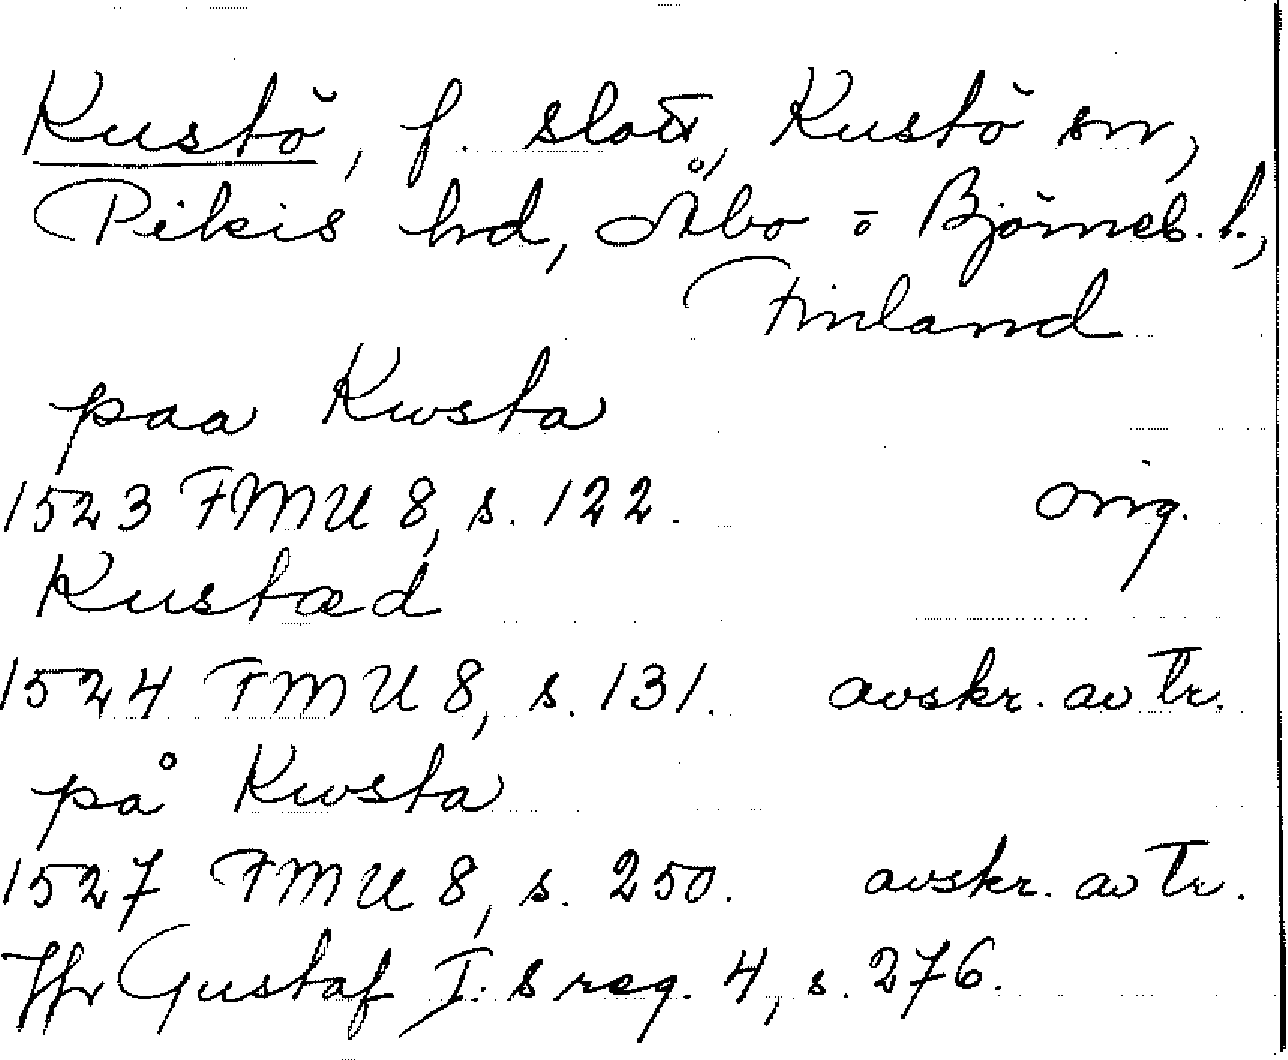 Kustö, f. slott, Kustö sn,
Pikis hd, Åbo o Björneb. l.,
Finland
paa Kwsta
1523 FMU 8, s. 122. orig.
Kustæd
1524 FMU 8, s. 131. avskr. av Tr.
på Kwsta
1527 FMU 8, s. 250. avskr. av Tr.
Jfr Gustaf I:s reg. 4, s. 276.